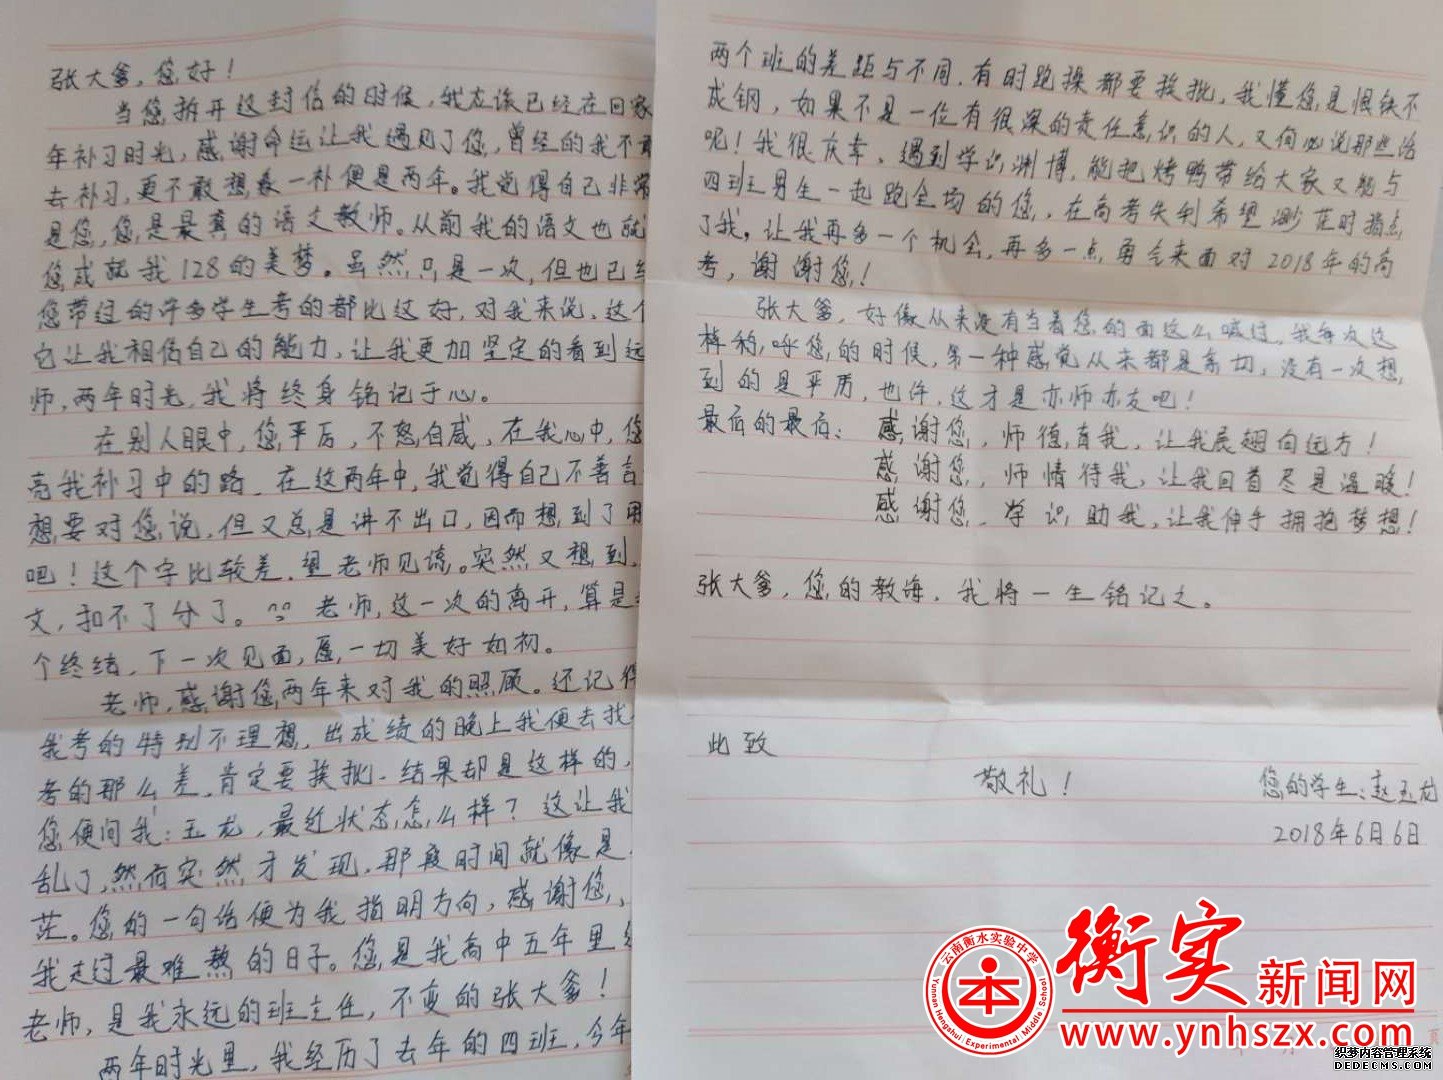 张大爹，您好！
当您拆开这封信的时候，我应该已经在回家
年补习时光，感谢命运让我遇见了您，曾经的我不敢
去补习，更不敢想象一补便是两年。我觉得自己非常
是您，您是最真的语文教师。从前我的语文也就
您成就我128的美梦。虽然只是一次，但也已经
您带过的许多学生考的都比这好，对我来说，这个
它让我相信自己的能力，让我更加坚定的看到远
师，两年时光，我将终身铭记于心。
在别人眼中，您严厉，不怒自威，在我心中，您
亮我补习中的路。在这两年中，我觉得自己不善言
想要对您说，但又总是讲不出口，因而想到了用
吧！这个字比较差，望老师见谅。突然又想到，
文，扣不了分了。老师，这一次的离开，算是
个终结，下一次见面，愿一切美好如初。
老师，感谢您两年来对我的照顾。还记得
我考的特别不理想，出成绩的晚上我便去找
考的那么差，肯定要挨批，结果却是这样的，
您便问我：玉龙，最近状态怎么样？这让我
乱了，然而突然才发现，那段时间就像是
茫。您的一句话便为我指明方向，感谢您，
我走过最难熬的日子。您是我高中五年里
老师，是我永远的班主任，不变的张大爹！
两年时光里，我经历了去年的四班，今年
两个班的差距与不同，有时跑操都要挨批，我懂您是恨铁不
成钢，如果不是一位有很深的责任意识的人，又何必说那些话
呢！我很庆幸，遇到学识渊博，能把烤鸭带给大家又能与
四班男生一起跑全场的您，在高考失利希望渺茫时指点
了我，让我再多一个机会，再多一点勇气来面对2018年的高
考，谢谢您！
张大爹，好像从来没有当着您的面这么喊过，我每次这
样称呼您的时候，第一种感觉从来都是亲切，没有一次想
到的是严厉，也许，这才是亦师亦友吧！
最后的最后：感谢您，师德育我，让我展翅向远方！
感谢您，师情待我，让我回首尽是温暖！
感谢您，学识助我，让我伸手拥抱梦想！
张大爹，您的教诲，我将一生铭记之。
此致
敬礼！
您的学生：赵玉龙
2018年6月6日
云南衡水实验中学
Yunnan Hengshui Experimental Middle School
衡实新闻网
www.ynhszx.com
织梦内容管理系统
DEDECMS.COM